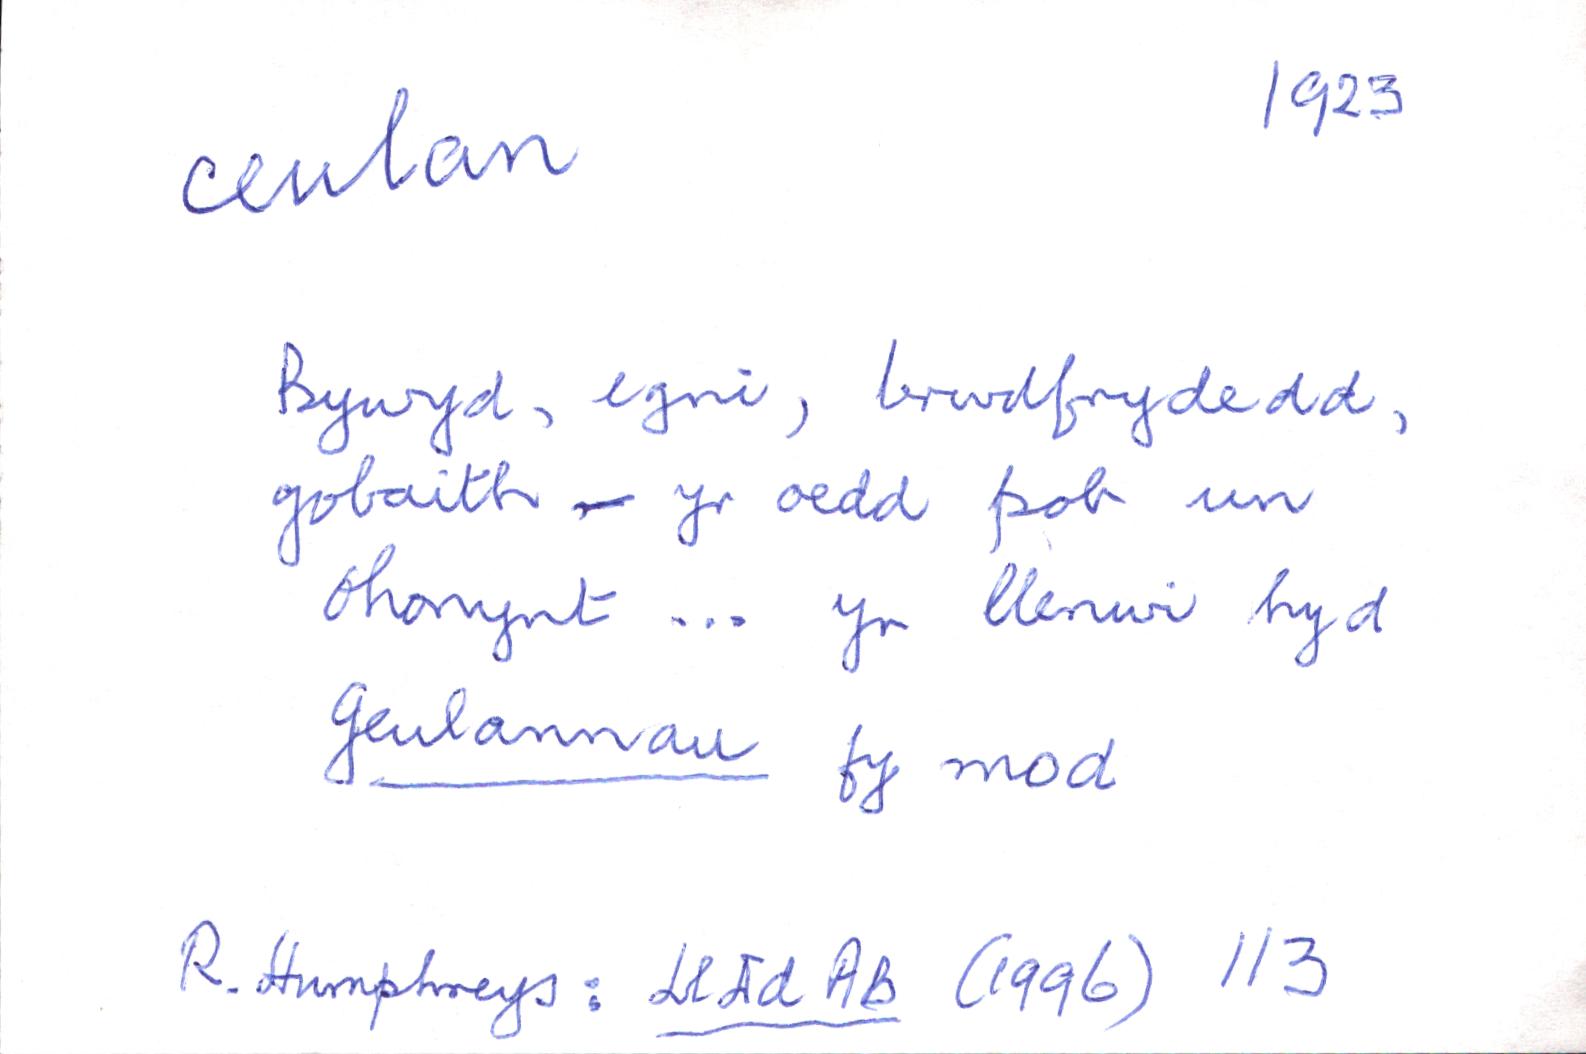 1923
ceulan
Bywyd, egni, brwdfrydedd,
gobaith – yr oedd pob un
ohonynt ... yn llenwi hyd
geulannau fy mod
R. Humphreys: Ll Id AB (1996) 113